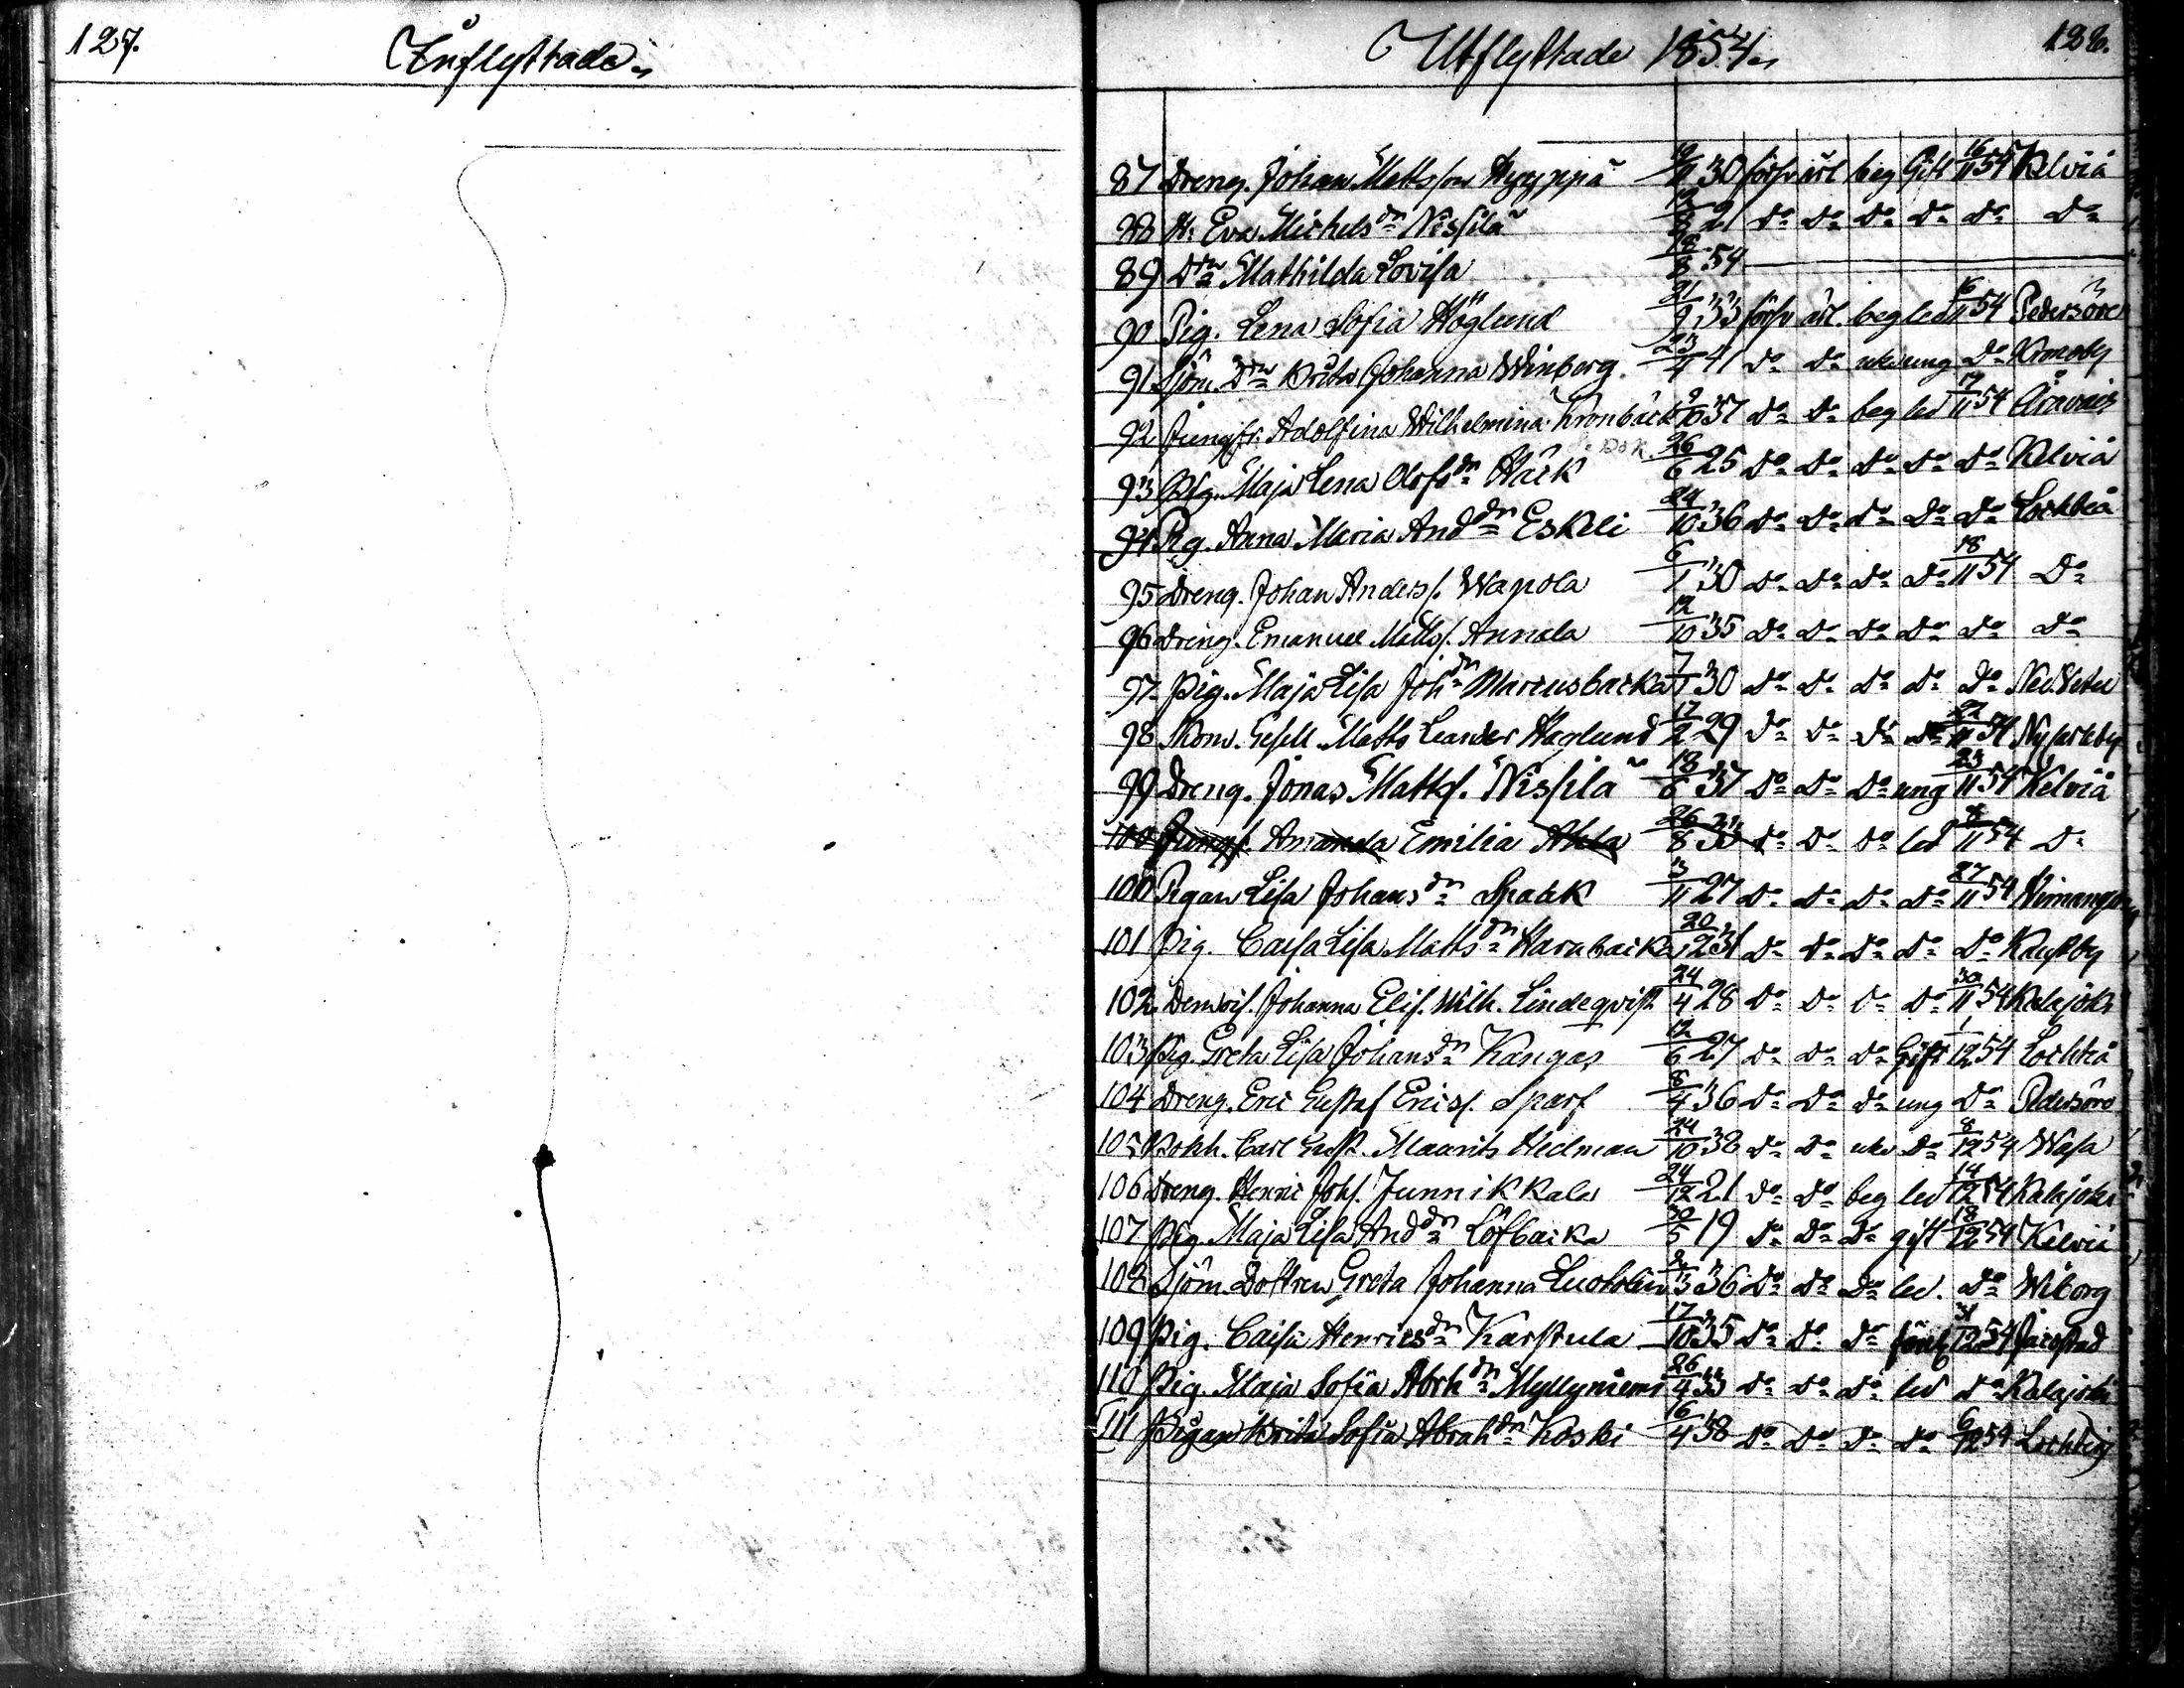 127.
Inflyttade
Utflyttade 1854
128.
87 Dreng. Johan Mattsson Hyyppä 12/11 30 förs. ärl beg Gift 16/11 54 Kelviå
88 H. Eva Michels dr Nissilä 12/8 21 Do Do Do Do Do Do
89 Dtr Mathilda Lovisa 12/8 54
90 Pig. Lena Sofia Höglund 21/9 33 förs ärl. beg led 16/11 54 Pedersöre
91 Sjöm. Dtr Brita Johanna Winberg. 23/4 41 Do Do ung Do Kronoby
92 Jungfr. Adolfina Wilhelmina Kronbäck 9/6 37 Do Do beg led 17/11 54 Oravais
93 Pig. Maja Lena Olofs dr Häck 26/6 25 Do Do Do Do Do Kelviå
94 Pig. Anna Maria And dr Eskeli 24/10 36 Do Do Do Do Do Lochteå
95 Dreng. Johan Anders. Wapola 6/1 30 Do Do Do Do 18/11 54 Do
96 Dreng. Emanuel Matts. Annala 12/10 35 Do Do Do Do Do Do
97. Pig. Maja Lisa Joh dr Marcusbacka 7/1 30 Do Do Do Do Do Ned. Vetil
98 Kom. Gesell Matts Leander Haglund 17/2 29 Do Do Do Do 22/11 54 Nycarleby
99 Dreng. Jonas Matts. Nissilä 18/6 37 Do Do Do ung 23/11 54 Kelviå
100 Jungf. Amanda Emilia Ahla 26/8 33 Do Do Do led 8/11 54 Do
100 Pigan Lisa Johans dr Spaak 3/11 27 Do Do Do Do 27/11 54 Himango
101 Pig. Caisa Lisa Matts dr Harubacka 20/12 31 Do Do Do Do Do Kaustby
102. Demois. Johanna Elis. Wilh. Lindeqvist 24/4 28 Do Do Do Do 30/11 54 Kalajoki
103 Pig. Greta Lisa Johans dr Kangas 12/6 27 Do Do Do Gift 1/12 54 Lochteå
104 Dreng. Eric Gustaf Erics. Sparf 8/4 36 Do Do Do ung Do Pedersöre
105 Bokh. Carl Gust. Maurits Hedman 24/10 38 Do Do Do 8/12 54 Wasa
106 Dreng. Henric Joh. Junnikkala 24/12 21 Do Do beg led 14/12 54 Kalajoki
107 Pig. Maja Lisa And dr Löfbacka 30/5 19 Do Do Do gift 18/12 54 Kelviå
108 Sjöm. Dottren Greta Johanna 2/3 36 Do Do Do led. Do Wiborg
109 Pig. Caisa Henrics dr Karstula 17/10 35 Do Do Do 31/12 54 Jacostad
110 Pig. Maja Sofia Abrh dr Myllyniemi 26/4 33 Do Do Do led Do Kalajoki
111 Pigan Brita Sofia Abrah dr Koski 16/4 38 Do Do Do Do 6/12 54 Lochteå